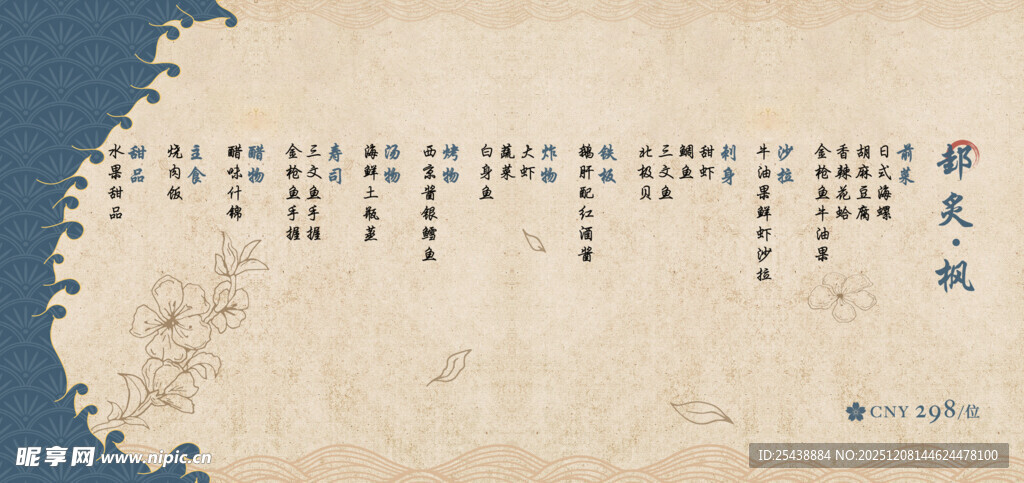 郆炙·枫
前菜
日式海螺
胡麻豆腐
香辣花蛤
金枪鱼牛油果
沙拉
牛油果鲜虾沙拉
刺身
甜虾
鲷鱼
三文鱼
北极贝
铁板
鹅肝配红酒酱
炸物
大虾
蔬菜
白身鱼
烤物
西京酱银鳕鱼
汤物
海鲜土瓶蒸
寿司
三文鱼手握
金枪鱼手握
醋物
醋味什锦
主食
烧肉饭
甜品
水果甜品
CNY 298/位
昵享网 www.nipic.cn
ID:25438884 NO:20251208144624478100